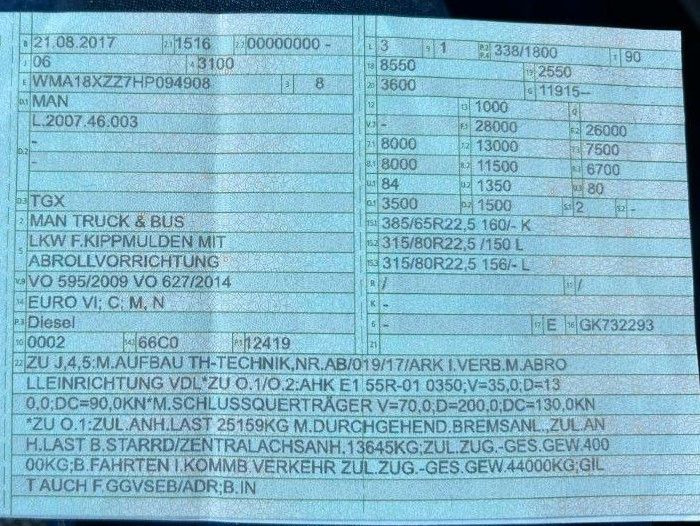 B 21.08.2017 2.1 1516 2.2 00000000 -
J 06 4 3100
E WMA18XZZ7HP094908 3 8
D.1 MAN
L.2007.46.003
D.2 -
-
D.3 TGX
2 MAN TRUCK & BUS
5 LKW F.KIPPMULDEN MIT
ABROLLVORRICHTUNG
V.9 VO 595/2009 VO 627/2014
14 EURO VI; C; M, N
P.3 Diesel
10 0002 14.1 66C0 P.1 12419
L 3 9 1 P.2 P.4 338/1800 T 90
18 8550 19 2550
20 3600 G 11915--
12 13 1000 Q
V.7 - F.1 28000 F.2 26000
7.1 8000 7.2 13000 7.3 7500
8.1 8000 8.2 11500 8.3 6700
U.1 84 U.2 1350 U.3 80
O.1 3500 O.2 1500 S.1 2 S.2 -
15.1 385/65R22,5 160/- K
15.2 315/80R22,5 /150 L
15.3 315/80R22,5 156/- L
R / 11 /
K -
6 - 17 E 16 GK732293
21
22 ZU J,4,5:M.AUFBAU TH-TECHNIK,NR.AB/019/17/ARK I.VERB.M.ABRO
LLEINRICHTUNG VDL*ZU O.1/O.2:AHK E1 55R-01 0350;V=35,0;D=13
0,0;DC=90,0KN*M.SCHLUSSQUERTRÄGER V=70,0,D=200,0;DC=130,0KN
*ZU O.1:ZUL.ANH.LAST 25159KG M.DURCHGEHEND.BREMSANL.,ZUL.AN
H.LAST B.STARRD/ZENTRALACHSANH.13645KG;ZUL.ZUG.-GES.GEW.400
00KG;B.FAHRTEN I.KOMMB.VERKEHR ZUL.ZUG.-GES.GEW.44000KG;GIL
T AUCH F.GGVSEB/ADR;B.IN